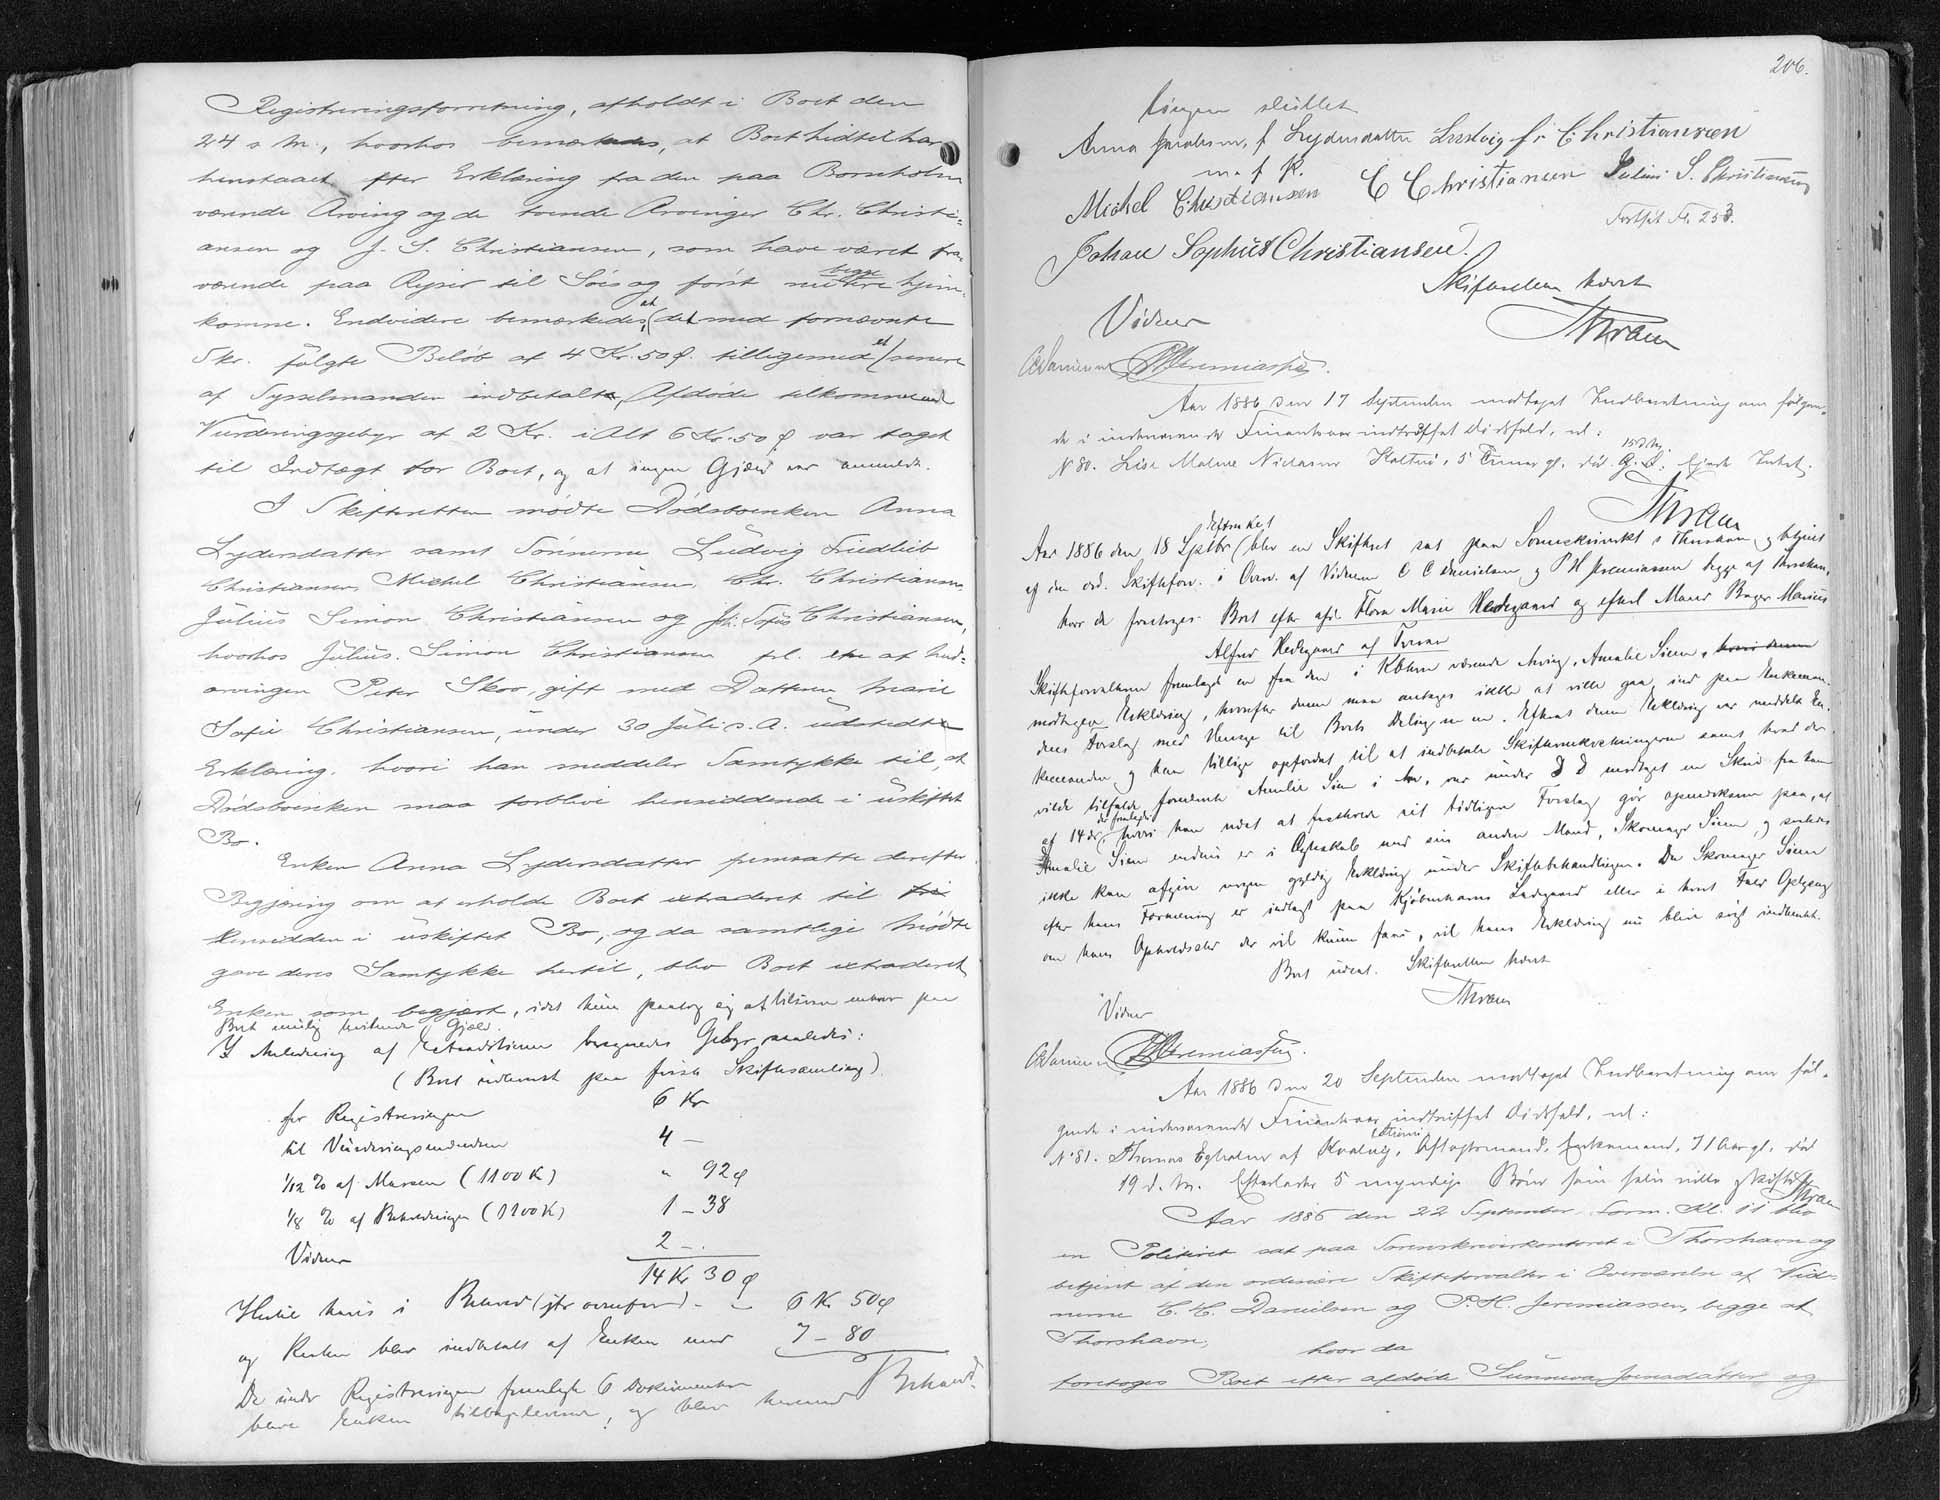 Registreringsforretning, afholdt i Boet den
24 s. M., hvorhos bemærkedes, at Boet hidtil har
henstaaet efter Erklæring fra den paa Bornholm
værende Arving og de tvende Arvinger Chr. Christi-
ansen og J. S. Christiansen, som have været fra-
værende paa Rejser til Søes og først nu begge ere hjem-
komne. Endvidere bemærkedes, at det med fornævnte
Skr. fulgte Beløb af 4 Kr. 50 Ø. tilligemed et senere
af Sysselmanden indbetalt, Afdøde tilkommende
Vurderingsgebyr af 2 Kr. i Alt 6 Kr. 50 Ø var taget
til Indtægt for Boet, og at ingen Gjæld var anmeldt.
I Skifteretten mødte Dødsboenken Anna
Lydersdatter samt Sønnerne Ludvig Friedlieb
Christiansen, Michel Christiansen, Chr. Christiansen,
Julius Simon Christiansen og Joh. Sofus Christiansen,
hvorhos Julius Simon Christiansen frl. en af Med-
arvingen Peter Skov, gift med Datteren Marie
Sofie Christiansen, under 30 Juli s. A. udstedt
Erklæring, hvori han meddeler Samtykke til, at
Dødsboenken maa forblive hensiddende i uskiftet
Bo.
Enken Anna Lydersdatter fremsatte derefter
Begjæring om at erholde Boet extraderet til
Hensidden i uskiftet Bo, og da samtlige Mødte
gave deres Samtykke hertil, blev Boet extraderet
Enken som begjært, idet hun paatog sig at tilsvare enhver paa
Boet mulig hvilende Gjæld.
I Anledning af Extraditionen beregnedes Gebyr saaledes:
(Boet sluttet paa første Skiftesamling)
for Registreringen 6 Kr
til Vurderingsmændene 4 —
1/12 % af Massen (1100 K) " 92 Ø
1/8 % af Beholdningen (1100 K) 1 — 38
Vidner 2 —
14 Kr 30 Ø
Heraf haves i Behold (jfr ovenfor) 6 Kr 50 Ø
og Resten blev indbetalt af Enken med 7 — 80
De under Registreringen fremlagte 6 Dokumenter
bleve Enken tilbageleverede, og blev herved Behand-
206.
lingen sluttet
Anna Jacobsen, f. Lydersdatter Ludvig Fr Christiansen
m. f. P.
Michel Christiansen C Christiansen Julius S. Christiansen
Fortsat Fl. 253.
Johan Sophus Christiansen.
Skifteretten hævet
Thram
Vidner
CCDanielsen PHJeremiassen.
Aar 1886 den 17 September modtaget Indberetning om følgen-
de i indeværende Finantsaar indtruffet Dødsfald, nl:
N 80. Lise Malene Niclasen Kaltnes, 5 Timer gl. død 15 d. M. Ejede Intet.
Thram
Aar 1886 den 18 Septbr Eftmkl 1 blev en Skifteret sat paa Sorenskriverkt i Thorshavn og betjent
af den ord. Skifteforv. i Overv. af Vidnerne C C Danielsen og P H Jeremiassen begge af Thorshavn,
hvor da foretoges Boet efter afd. Flora Marie Hedegaard og efterl Mand Bager Marius
Alfred Hedegaard af Tveraa
Skifteforvalteren fremlagde en fra den i Kbhvn værende Arving, Amalie Siem,
modtagen Erklæring, hvorefter denne maa antages ikke at ville gaa ind paa Enkeman-
dens Forslag med Hensyn til Boets Deling m. m. Efterat denne Erklæring var meddelt En-
kemanden og han tillige opfordret til at indbetale Skifteomkostningerne samt hvad der
vilde tilfalde fornævnte Amalie Siem i Arv, var under D D modtaget en Skrivelse fra ham
af 14 ds, der fremlagdes, hvori han udet at fastholde sit tidligere Forslag gør opmærksom paa, at
Amalie Siem endnu er i Ægteskab med sin anden Mand, Skomager Siem, og saaledes
ikke kan afgive nogen gyldig Erklæring under Skiftebehandlingen. Da Skomager Siem
efter hans Formening er indlagt paa Kjøbenhavns Ladegaard eller i hvert Fald Oplysning
om hans Opholdssted der vil kunne faas, vil hans Erklæring nu blive søgt indhentet.
Boet udsat. Skifteretten hævet
Thram
Vidner
CCDanielsen PHJeremiassen.
Aar 1886 den 20 September modtaget Indberetning om føl-
gende i indeværende Finantsaar indtruffet Dødsfald, nl:
N 81. Thomas Egholm af Kvalvig, Aftægtsmand, Enkemand, 71 Aar gl. død
19 d. M. Efterlader 5 myndige Børn som selv ville skifte.
Thram
Aar 1886 den 22 September Form. Kl. 11 blev
en Politiret sat paa Sorenskriverkontoret i Thorshavn og
betjent af den ordinære Skifteforvalter i Overværelse af Vid-
nerne C. C. Danielsen og P. H. Jeremiassen, begge af
Thorshavn,
hvor da
foretoges Boet efter afdøde Sunneva Joensdatter og